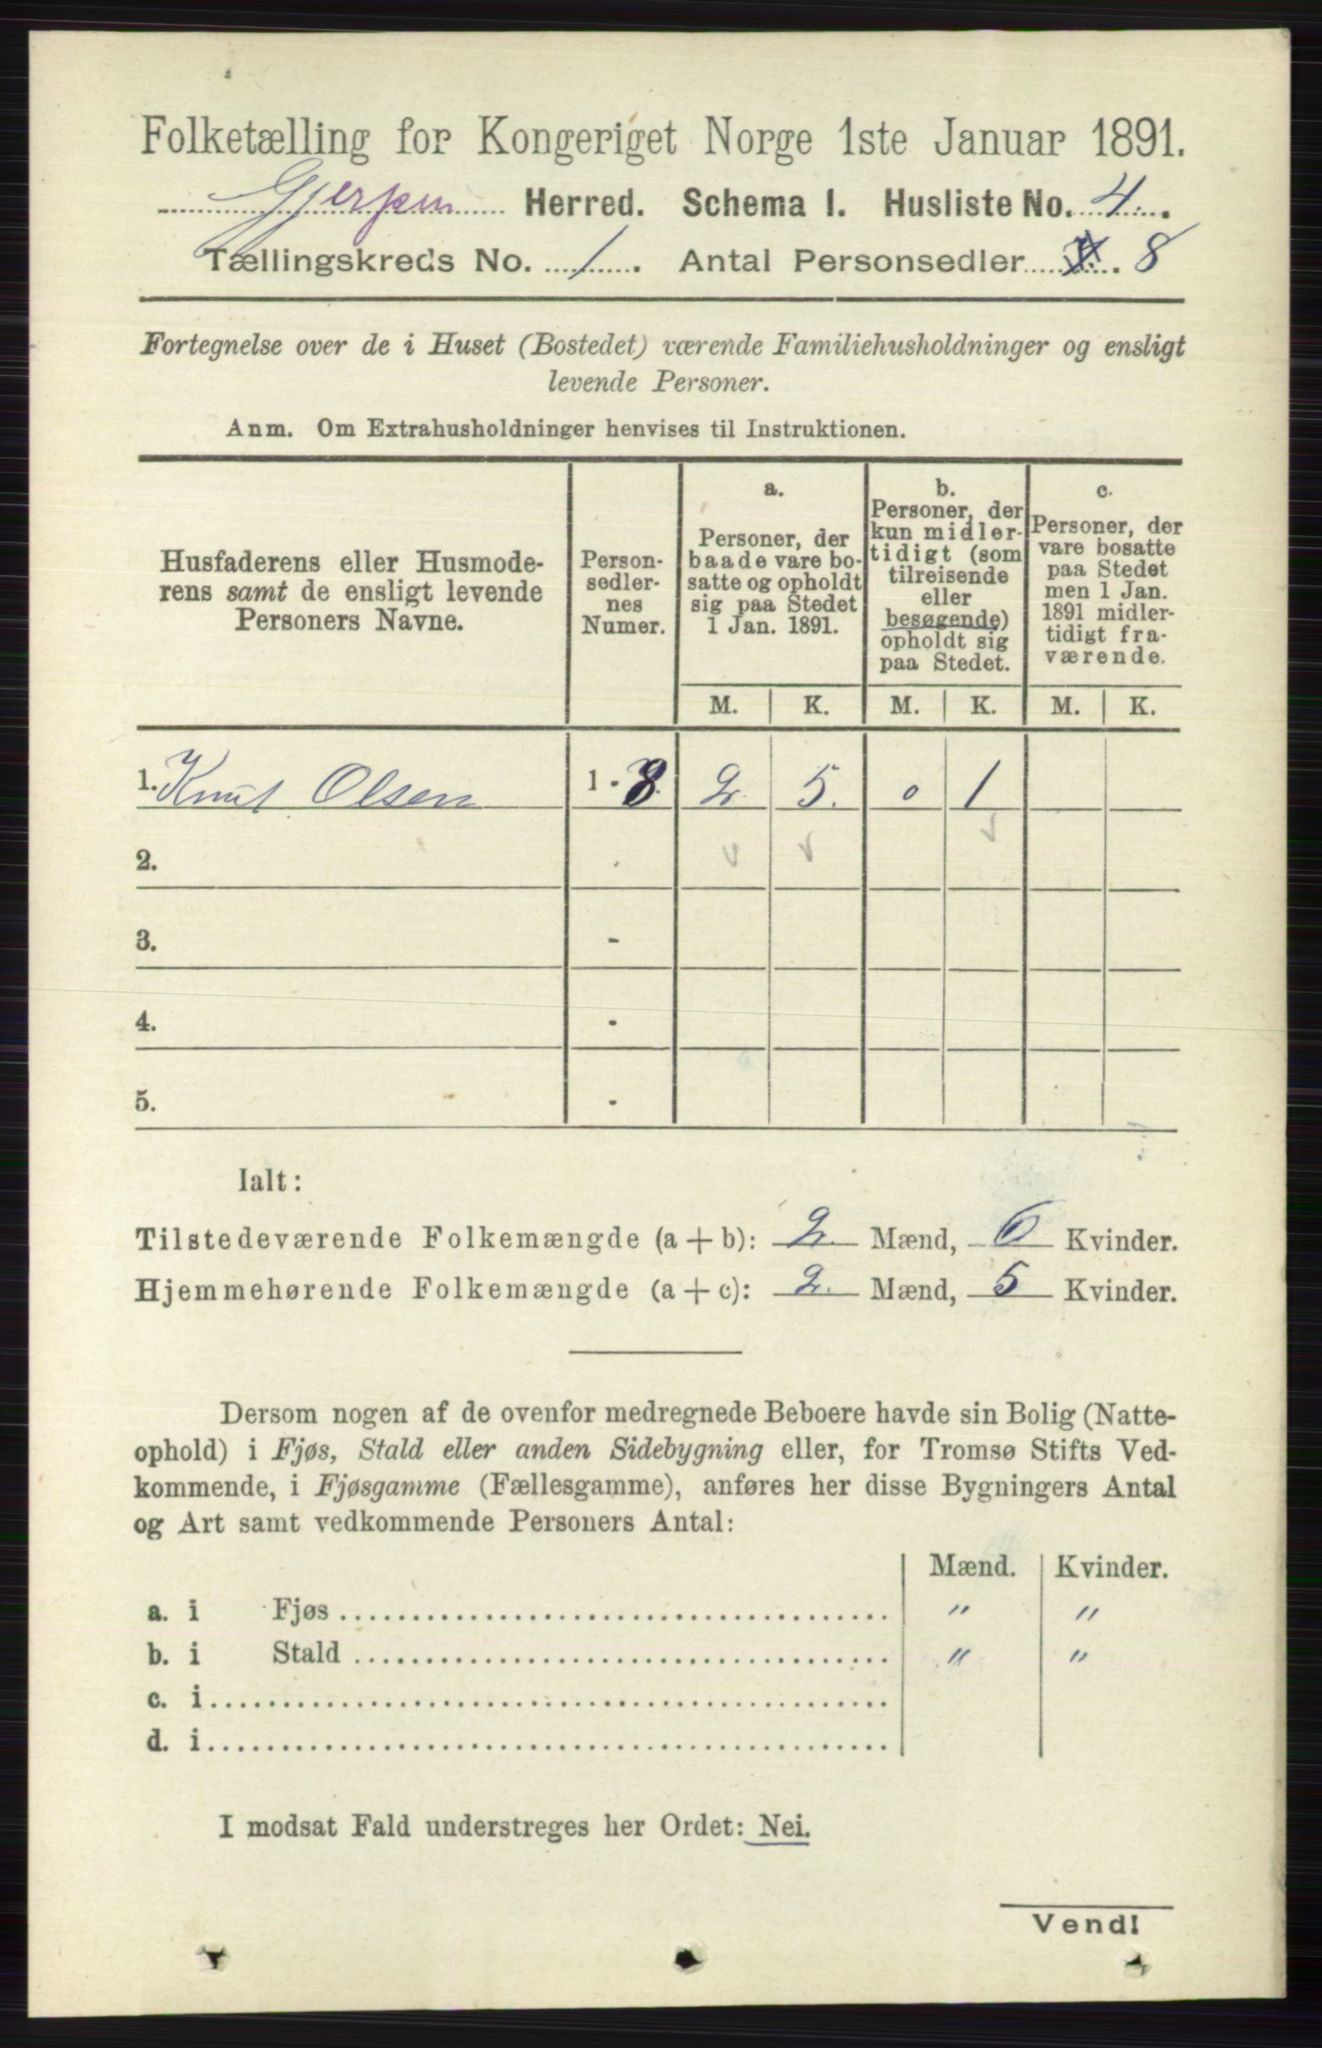 Folketælling for Kongeriget Norge 1ste Januar 1891.
Gjerpen Herred. Schema I. Husliste No. 4.
Tællingskreds No. 1. Antal Personsedler 8
Fortegnelse over de i Huset (Bostedet) værende Familiehusholdninger og ensligt
levende Personer.
Anm. Om Extrahusholdninger henvises til Instruktionen.
Husfaderens eller Husmode-
rens samt de ensligt levende
Personers Navne.
Person-
sedler-
nes
Numer.
a.
Personer, der
baade vare bo-
satte og opholdt
sig paa Stedet
1 Jan. 1891.
b.
Personer, der
kun midler-
tidigt (som
tilreisende
eller
besøgende)
opholdt sig
paa Stedet.
c.
Personer, der
vare bosatte
paa Stedet
men 1 Jan.
1891 midler-
tidigt fra-
værende.
M. K. M. K. M. K.
1. Knut Olsen 1 - 8 2 5. 0 1
2.
3. -
4. -
5. -
Ialt:
Tilstedeværende Folkemængde (a + b): 2 Mænd, 6 Kvinder.
Hjemmehørende Folkemængde (a + c): 2 Mænd, 5 Kvinder.
Dersom nogen af de ovenfor medregnede Beboere havde sin Bolig (Natte-
ophold) i Fjøs, Stald eller anden Sidebygning eller, for Tromsø Stifts Ved-
kommende, i Fjøsgamme (Fællesgamme), anføres her disse Bygningers Antal
og Art samt vedkommende Personers Antal:
Mænd. Kvinder.
a. i Fjøs " "
b. i Stald " "
c. i
d. i
I modsat Fald understreges her Ordet: Nei.
Vend!